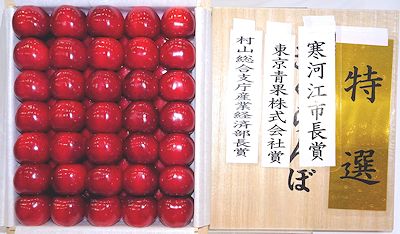 特選
寒河江市長賞
東京青果株式会社賞
村山総合支庁産業経済部長賞
さくらんぼ